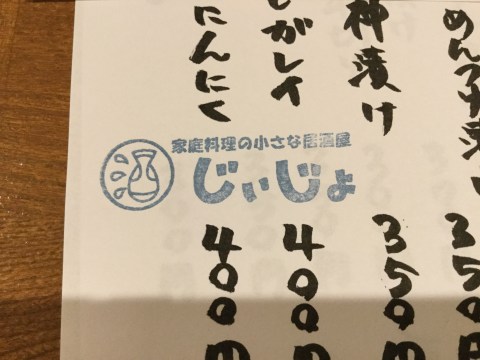 漬
350円
神漬け
350円
がレイ
400円
にんにく
400円
家庭料理の小さな居酒屋
じぃじょ